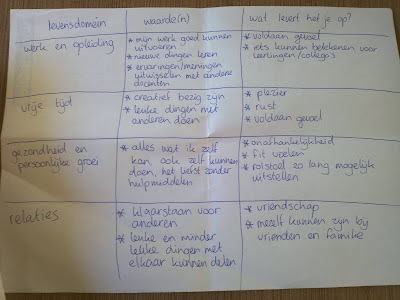 levensdomein
waarde(n)
wat levert het je op?
werk en opleiding
* mijn werk goed kunnen
uitvoeren
* nieuwe dingen leren
* ervaringen/meningen
uitwisselen met andere
docenten
* voldaan gevoel
* iets kunnen betekenen voor
leerlingen/collega's
vrije tijd
* creatief bezig zijn
* leuke dingen met
anderen doen
* plezier
* rust
* voldaan gevoel
gezondheid en
persoonlijke groei
* alles wat ik zelf
kan, ook zelf kunnen
doen, het liefst zonder
hulpmiddelen
* onafhankelijkheid
* fit voelen
* rolstoel zo lang mogelijk
uitstellen
relaties
* klaarstaan voor
anderen
* leuke en minder
leuke dingen met
elkaar kunnen delen
* vriendschap
* mezelf kunnen zijn bij
vrienden en familie